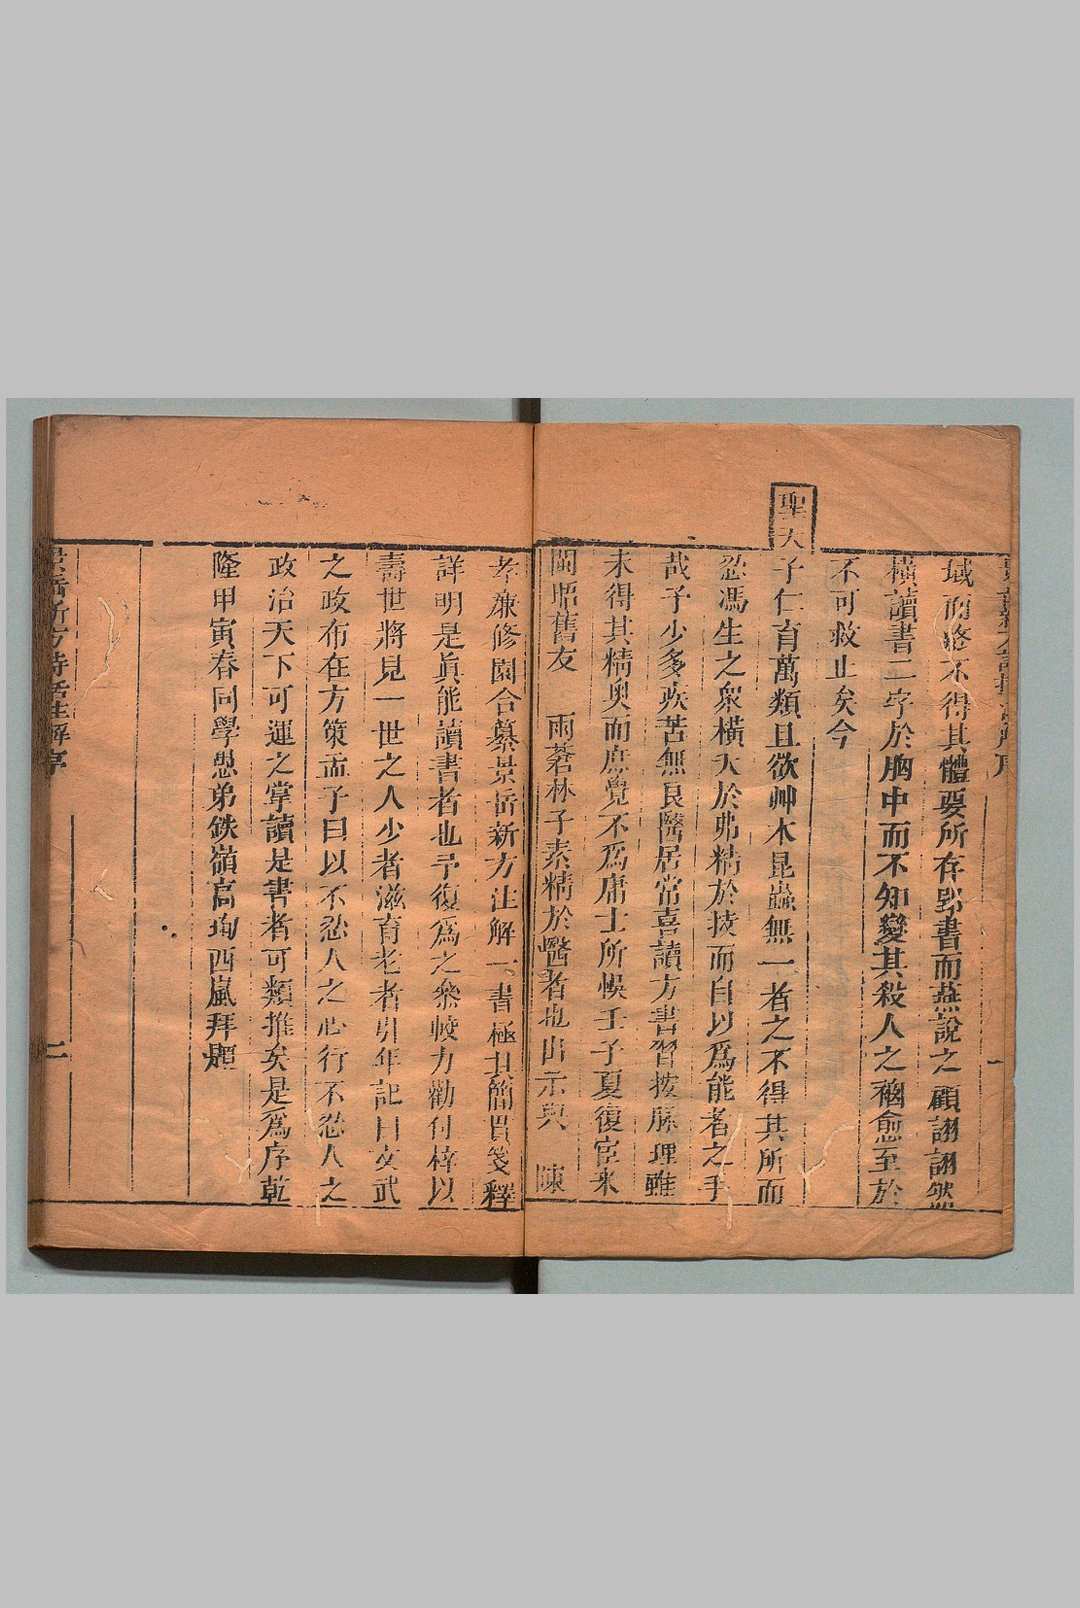 域而終不得其體要所存野書而燕說之顧詡詡然
橫讀書二字於胸中而不知變其殺人之禍愈至於
不可救止矣今
聖天子仁育萬類且欲艸木昆蟲無一者之不得其所而
忍馮生之眾橫夭於弗精於技而自以爲能者之手
哉予少多疾苦無良醫居常喜讀方書習按脉理雖
未得其精奧而庶覺不爲庸士所悞壬子夏復宦來
閩昭舊友 雨蒼林子素精於醫者也出示與 陳
孝廉修園合纂景岳新方注解一書極其簡賅箋釋
詳明是眞能讀書者也予復爲之叅較力勸付梓以
壽世將見一世之人少者滋育老者引年記曰文武
之政布在方策孟子曰以不忍人之心行不忍人之
政治天下可運之掌讀是書者可類推矣是爲序乾
隆甲寅春同學愚弟鉄嶺高 西嵐拜題
二